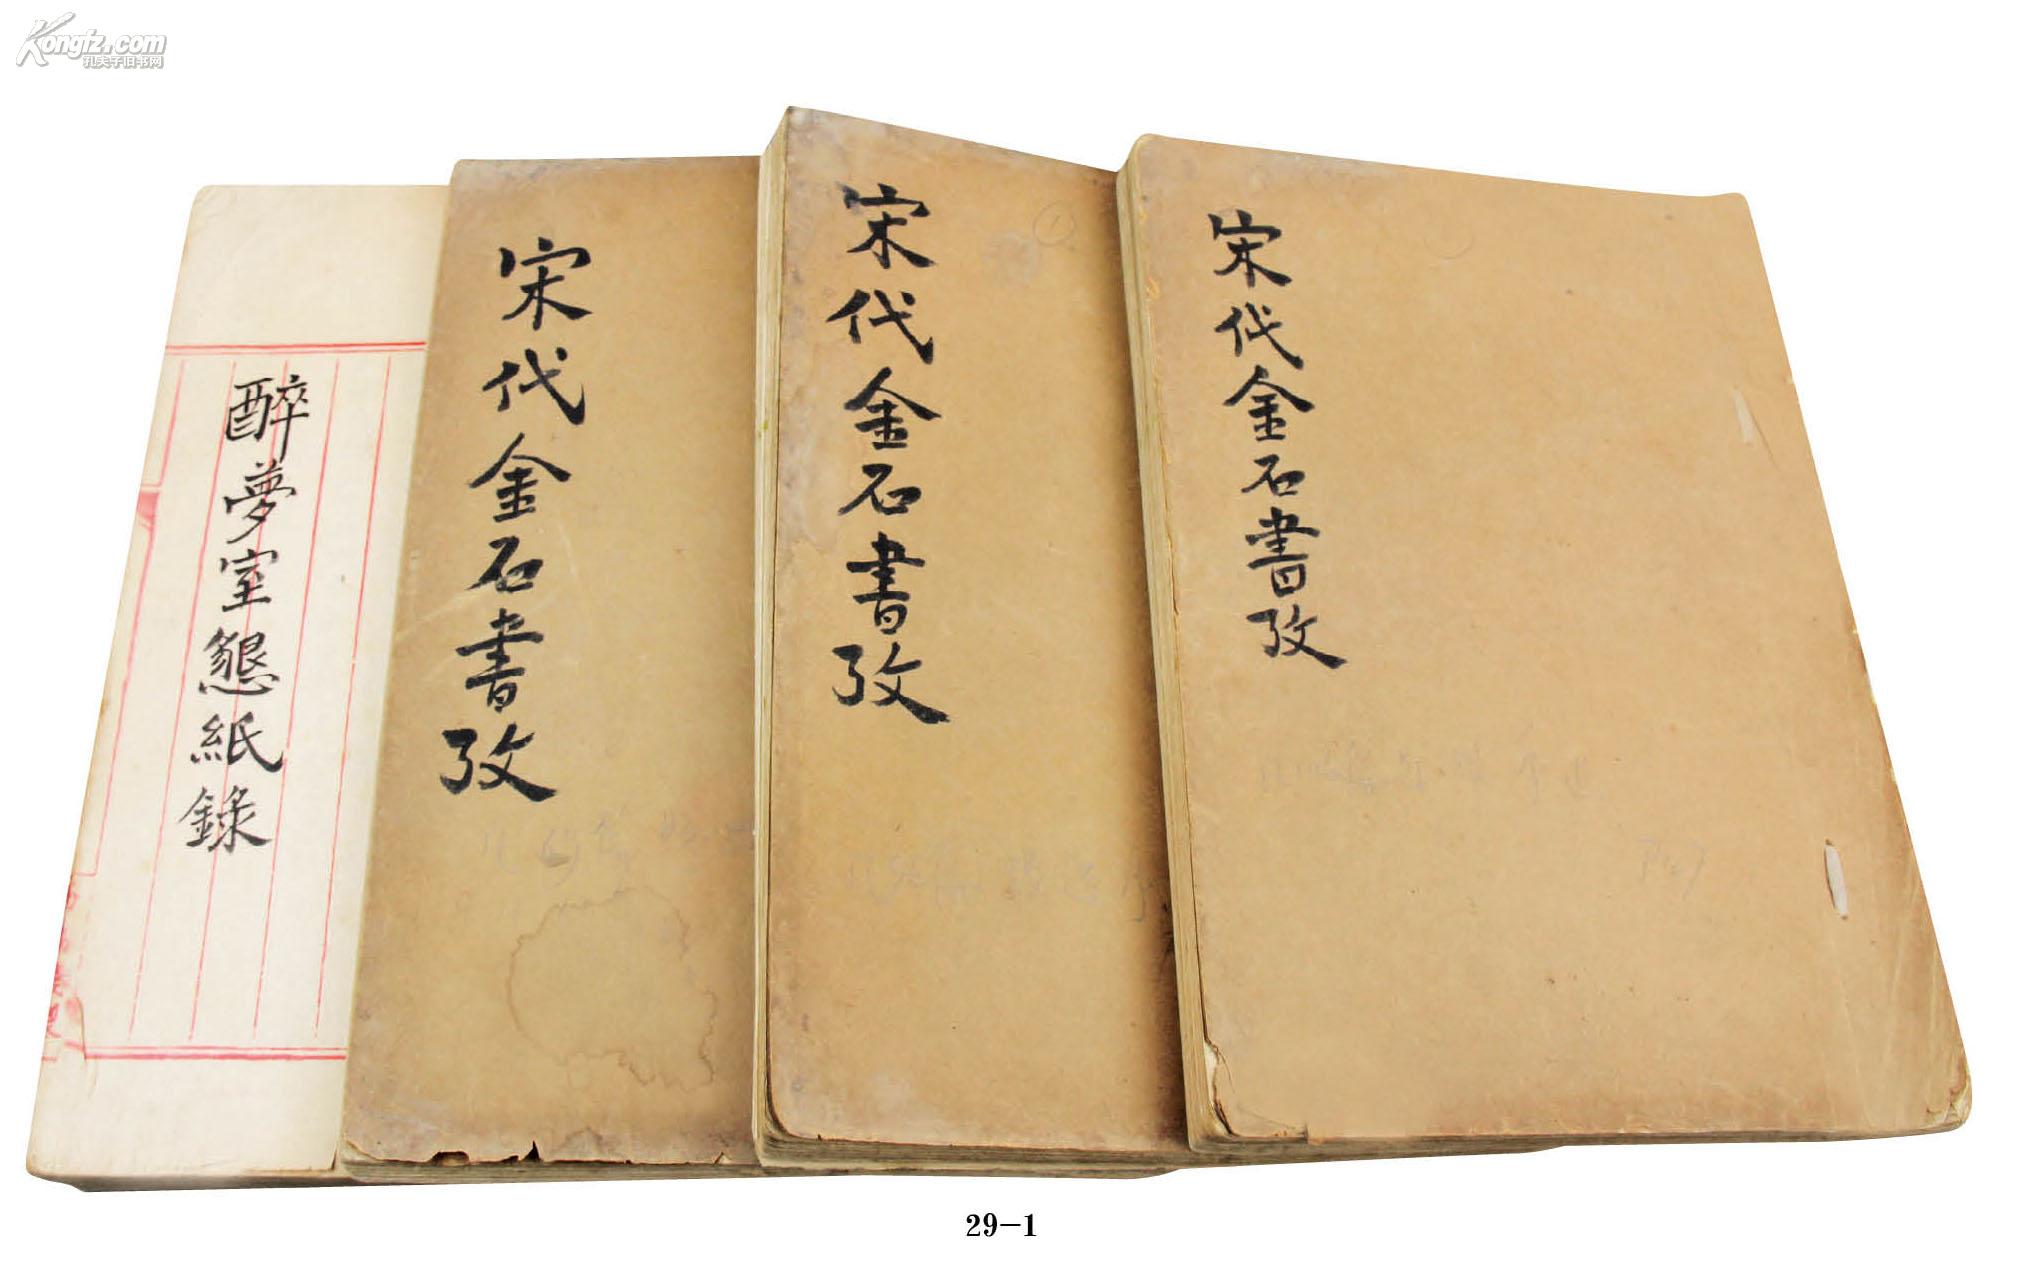 Kongfz.com
孔夫子旧书网
宋代金石書攷
宋代金石書攷
宋代金石書攷
醉夢室懇紙錄
29-1